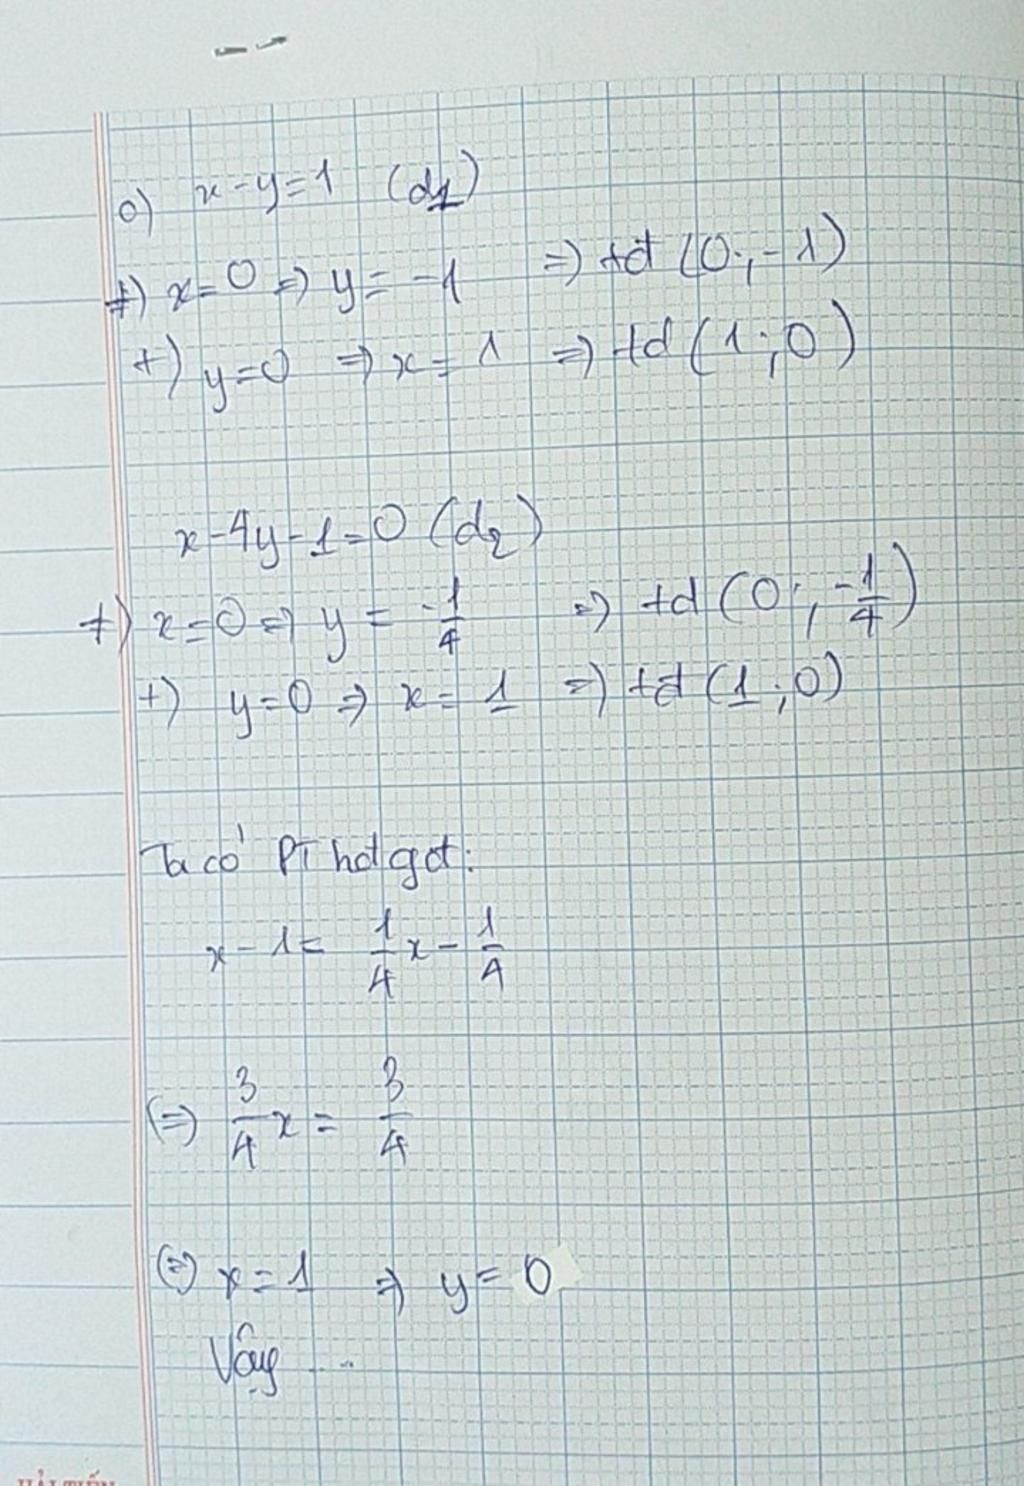 o) x - y = 1 (d1)
+) x = 0 => y = -1 => tđ (0; -1)
+) y = 0 => x = 1 => tđ (1; 0)
x - 4y - 1 = 0 (d2)
+) x = 0 => y = -1/4 => tđ (0; -1/4)
+) y = 0 => x = 1 => tđ (1; 0)
Ta có PT hđgđ:
x - 1 = 1/4 x - 1/4
(=) 3/4 x = 3/4
(=) x = 1 => y = 0
Vậy ...
HẢI TIẾN